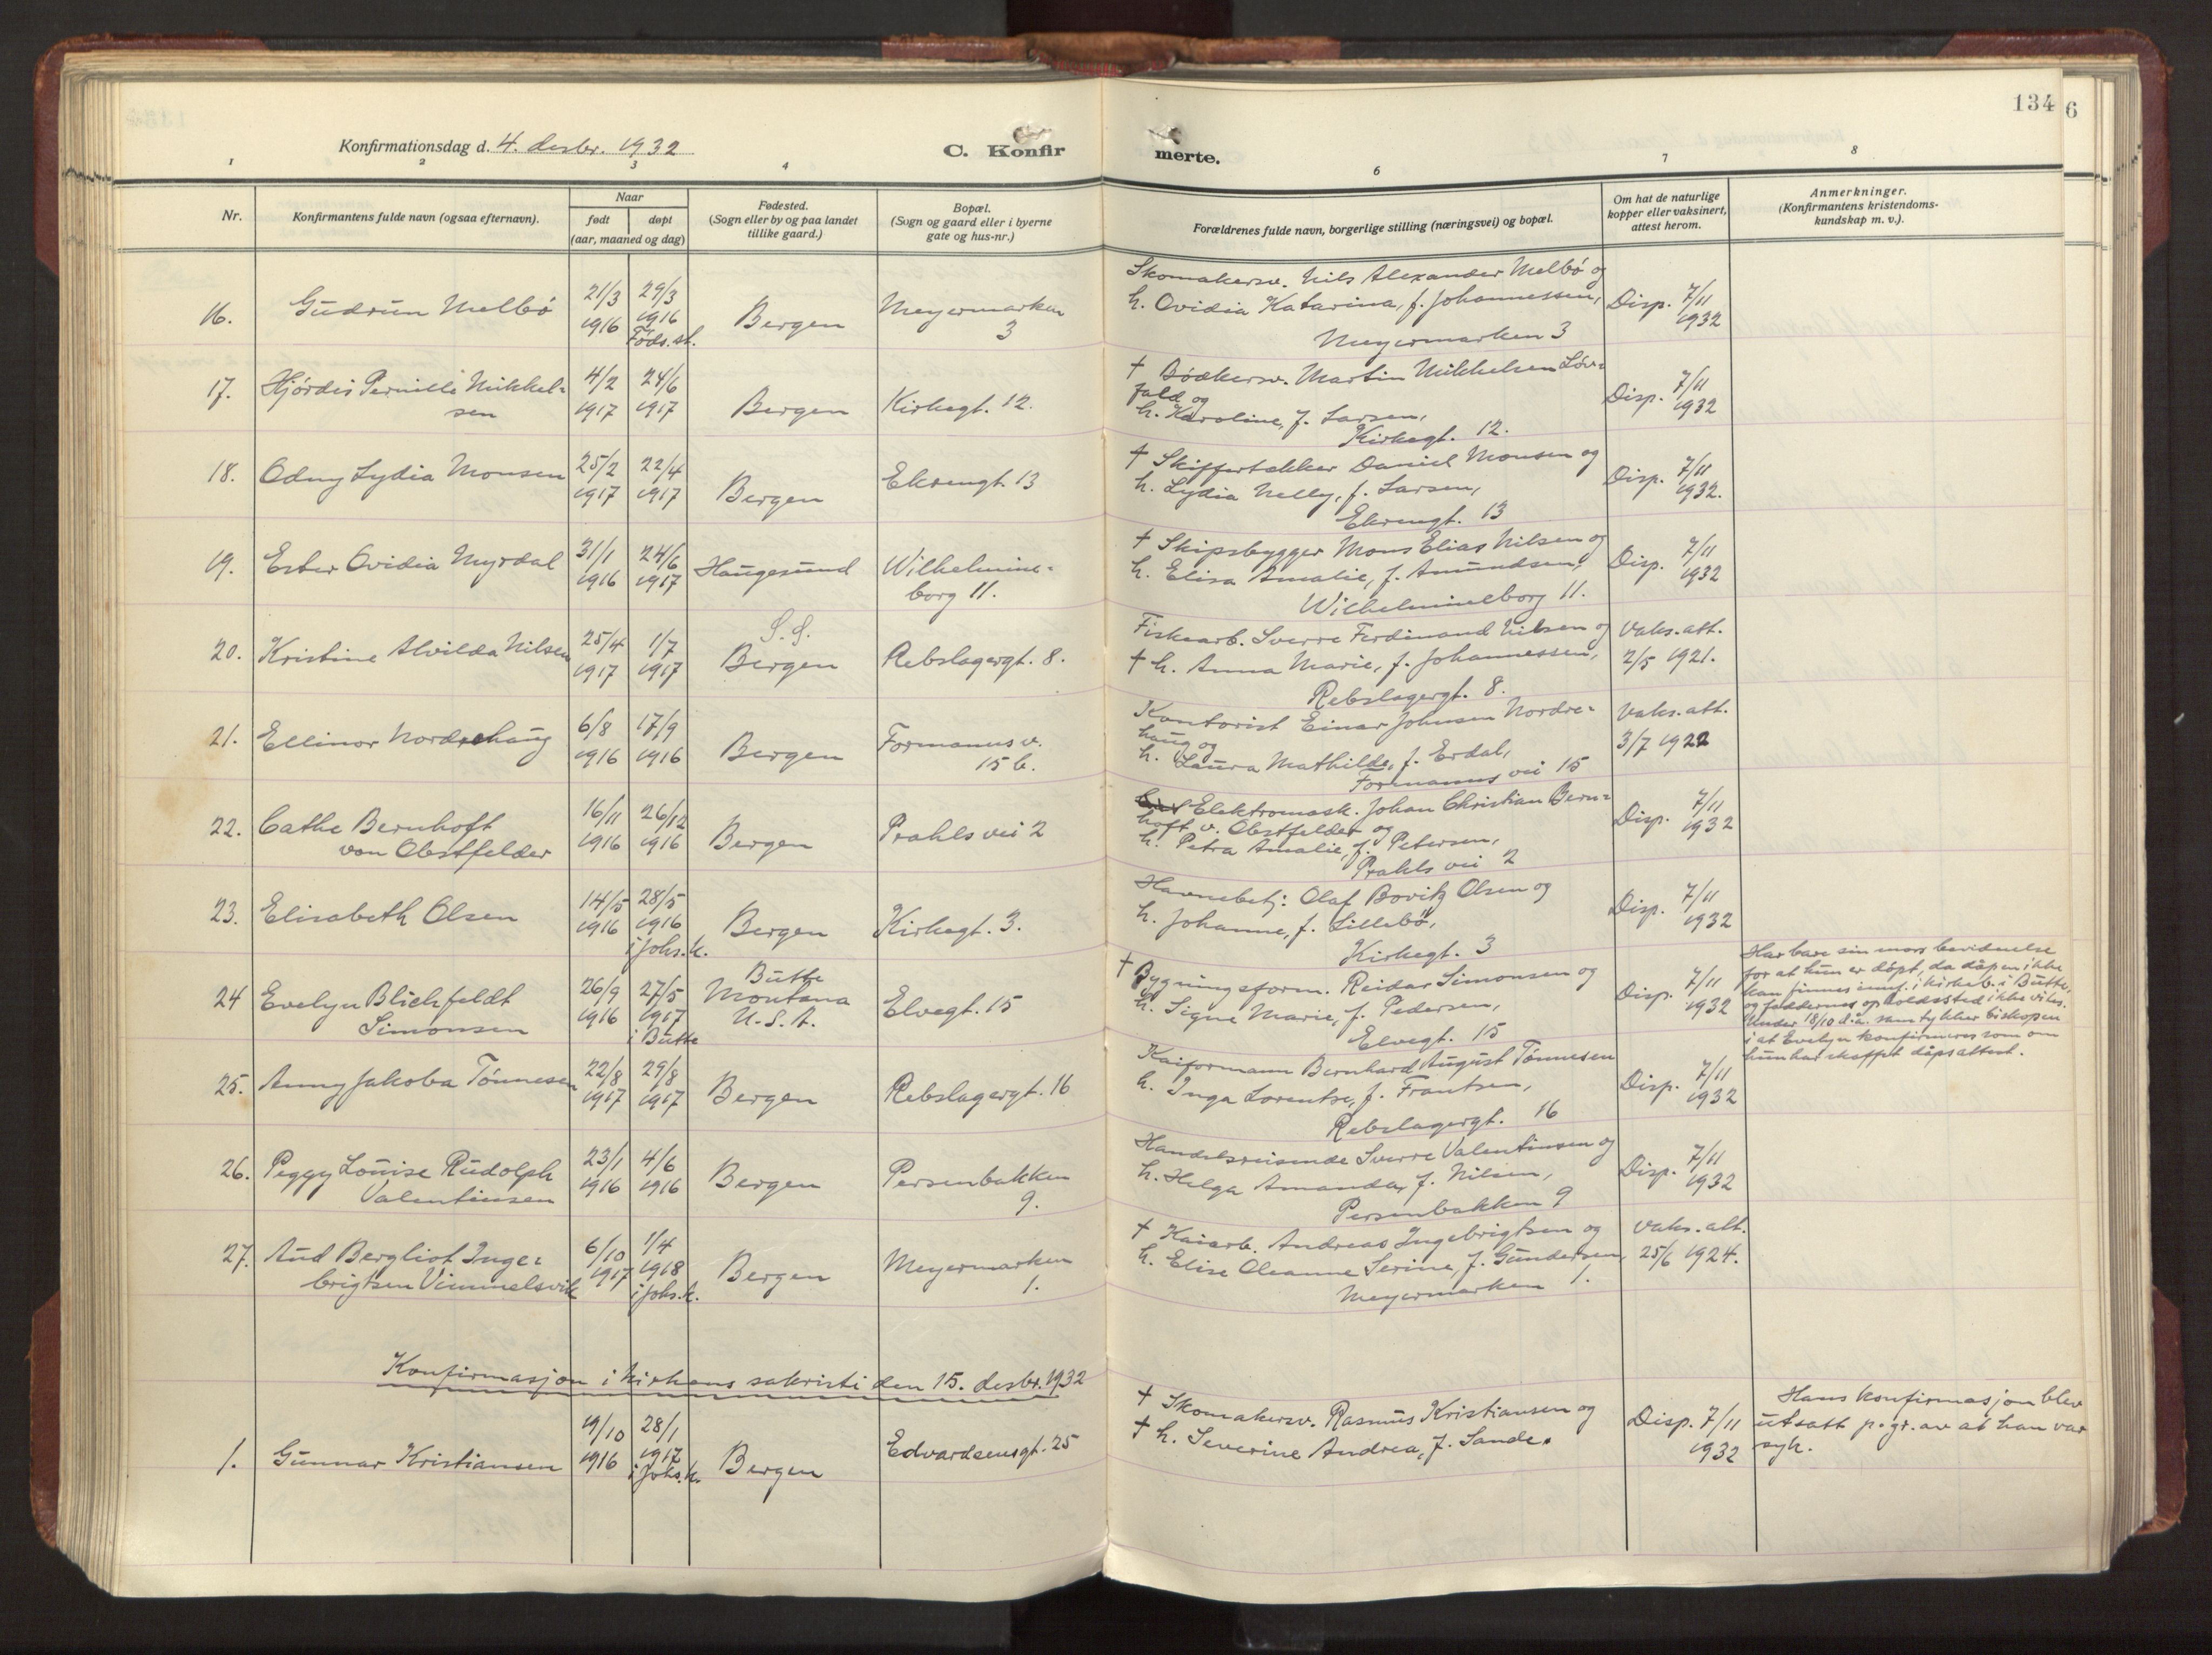 134
6
Konfirmationsdag d. 4. desbr. 1932
C. Konfir
merte.
1
2
3
4
6
7
8
Nr.
Konfirmantens fulde navn (ogsaa efternavn).
Naar
født
døpt
(aar, maaned og dag)
Fødested.
(Sogn eller by og paa landet
tillike gaard.)
Bopæl.
(Sogn og gaard eller i byerne
gate og hus-nr.)
Forældrenes fulde navn, borgerlige stilling (næringsvei) og bopæl.
Om hat de naturlige
kopper eller vaksinert,
attest herom.
Anmerkninger.
(Konfirmantens kristendoms-
kundskap m. v.).
16.
Gudrun Melbö
21/3
1916
29/3
1916
Föds.st.
Bergen
Meyermarken
3
Skomakersv. Nils Alexander Melbö og
h. Ovidia Katarina, f. Johannessen,
Meyermarken 3
Disp. 7/11
1932
17.
Hjördis Pernille Mikkel-
sen
4/2
1917
24/6
1917
Bergen
Kirkegt. 12.
† Bödkersv. Martin Mikkelsen Löv-
fald og
h. Karoline, f. Larsen,
Kirkegt. 12.
Disp. 7/11
1932
18.
Odny Lydia Monsen
25/2
1917
22/4
1917
Bergen
Ekrengt. 13
† Skiffertekker Daniel Monsen og
h. Lydia Nelly, f. Larsen,
Ekrengt. 13
Disp. 7/11
1932.
19.
Ester Ovidia Myrdal
31/1
1916
24/6
1917
Haugesund
Wilhelmine-
borg 11.
† Skipsbygger Mons Elias Nilsen og
h. Elisa Amalie, f. Amundsen,
Wilhelmineborg 11.
Disp. 7/11
1932
20.
Kristine Alvilda Nilsen
25/4
1917
1/7
1917
S.S.
Bergen
Rebslagergt. 8.
Fiskearb. Sverre Ferdinand Nilsen og
† h. Anna Marie, f. Johannessen,
Rebslagergt. 8.
Vaks. att.
2/5 1921.
21.
Ellinor Nordrehaug
6/8
1916
17/9
1916
Bergen
Formanns v.
15 b.
Kontorist Einar Johnsen Nordre-
haug og
h. Laura Mathilde, f. Erdal,
Formanns vei 15
Vaks. att.
3/7 1922
22.
Cathe Bernhoft
von Obstfelder
16/11
1916
26/12
1916
Bergen
Prahls vei 2
Elektromask. Johan Christian Bern-
hoft v. Obstfelder og
h. Petra Amalie, f. Petersen,
Prahls vei 2
Disp. 7/11
1932
23.
Elisabeth Olsen
14/5
1916
28/5
1916
i Johs.k.
Bergen
Kirkegt. 3.
Havnebetj: Olaf Bovitz Olsen og
h. Johanne, f. Lillebö,
Kirkegt. 3
Disp. 7/11
1932
24
Evelyn Blichfeldt
Simonsen
26/9
1916
27/5
1917
i Butte
Butte
Montana
U.S.A.
Elvegt. 15
† Bygningsform. Reidar Simonsen og
h. Signe Marie, f. Pedersen,
Elvegt. 15
Disp. 7/11
1932
Har bare sin mors bevidnelse
for at hun er döpt, da dåpen ikke
kan finnes innf. i kirkeb. i Butte,
og faddernes opholdssted ikke vites.
Under 18/10 d.å. samtykker biskopen
i at Evelyn konfirmeres som om
hun har skaffet dåpsattest.
25.
Anny Jakoba Tönnesen
22/8
1917
29/8
1917
Bergen
Rebslagergt. 16
Kaiformann Bernhard August Tönnesen
h. Inga Lorentse, f. Frantsen,
Rebslagergt. 16
Disp. 7/11
1932
26.
Peggy Louise Rudolph
Valentinsen
23/1
1916
4/6
1916
Bergen
Persenbakken
9.
Handelsreisende Sverre Valentinsen og
h. Helga Amanda, f. Nilsen,
Persenbakken 9
Disp. 7/11
1932
27.
Aud Bergliot Inge-
brigtsen Vimmelsvik
6/10
1917
1/4
1918
i Johs.k.
Bergen
Meyermarken
1.
† Kaiarb. Andreas Ingebrigtsen og
h. Elise Oleanne Serine, f. Gundersen,
Meyermarken 1.
Vaks. att.
25/6 1924.
Konfirmasjon i kirkens sakristi den 15. desbr. 1932
1.
Gunnar Kristiansen
19/10
1916
28/1
1917
i Johs.k.
Bergen
Edvardsensgt. 25
† Skomakersv. Rasmus Kristiansen og
† h. Severine Andrea, f. Sande.
Disp. 7/11
1932
Hans konfirmasjon blev
utsatt p.gr. av at han var
syk.